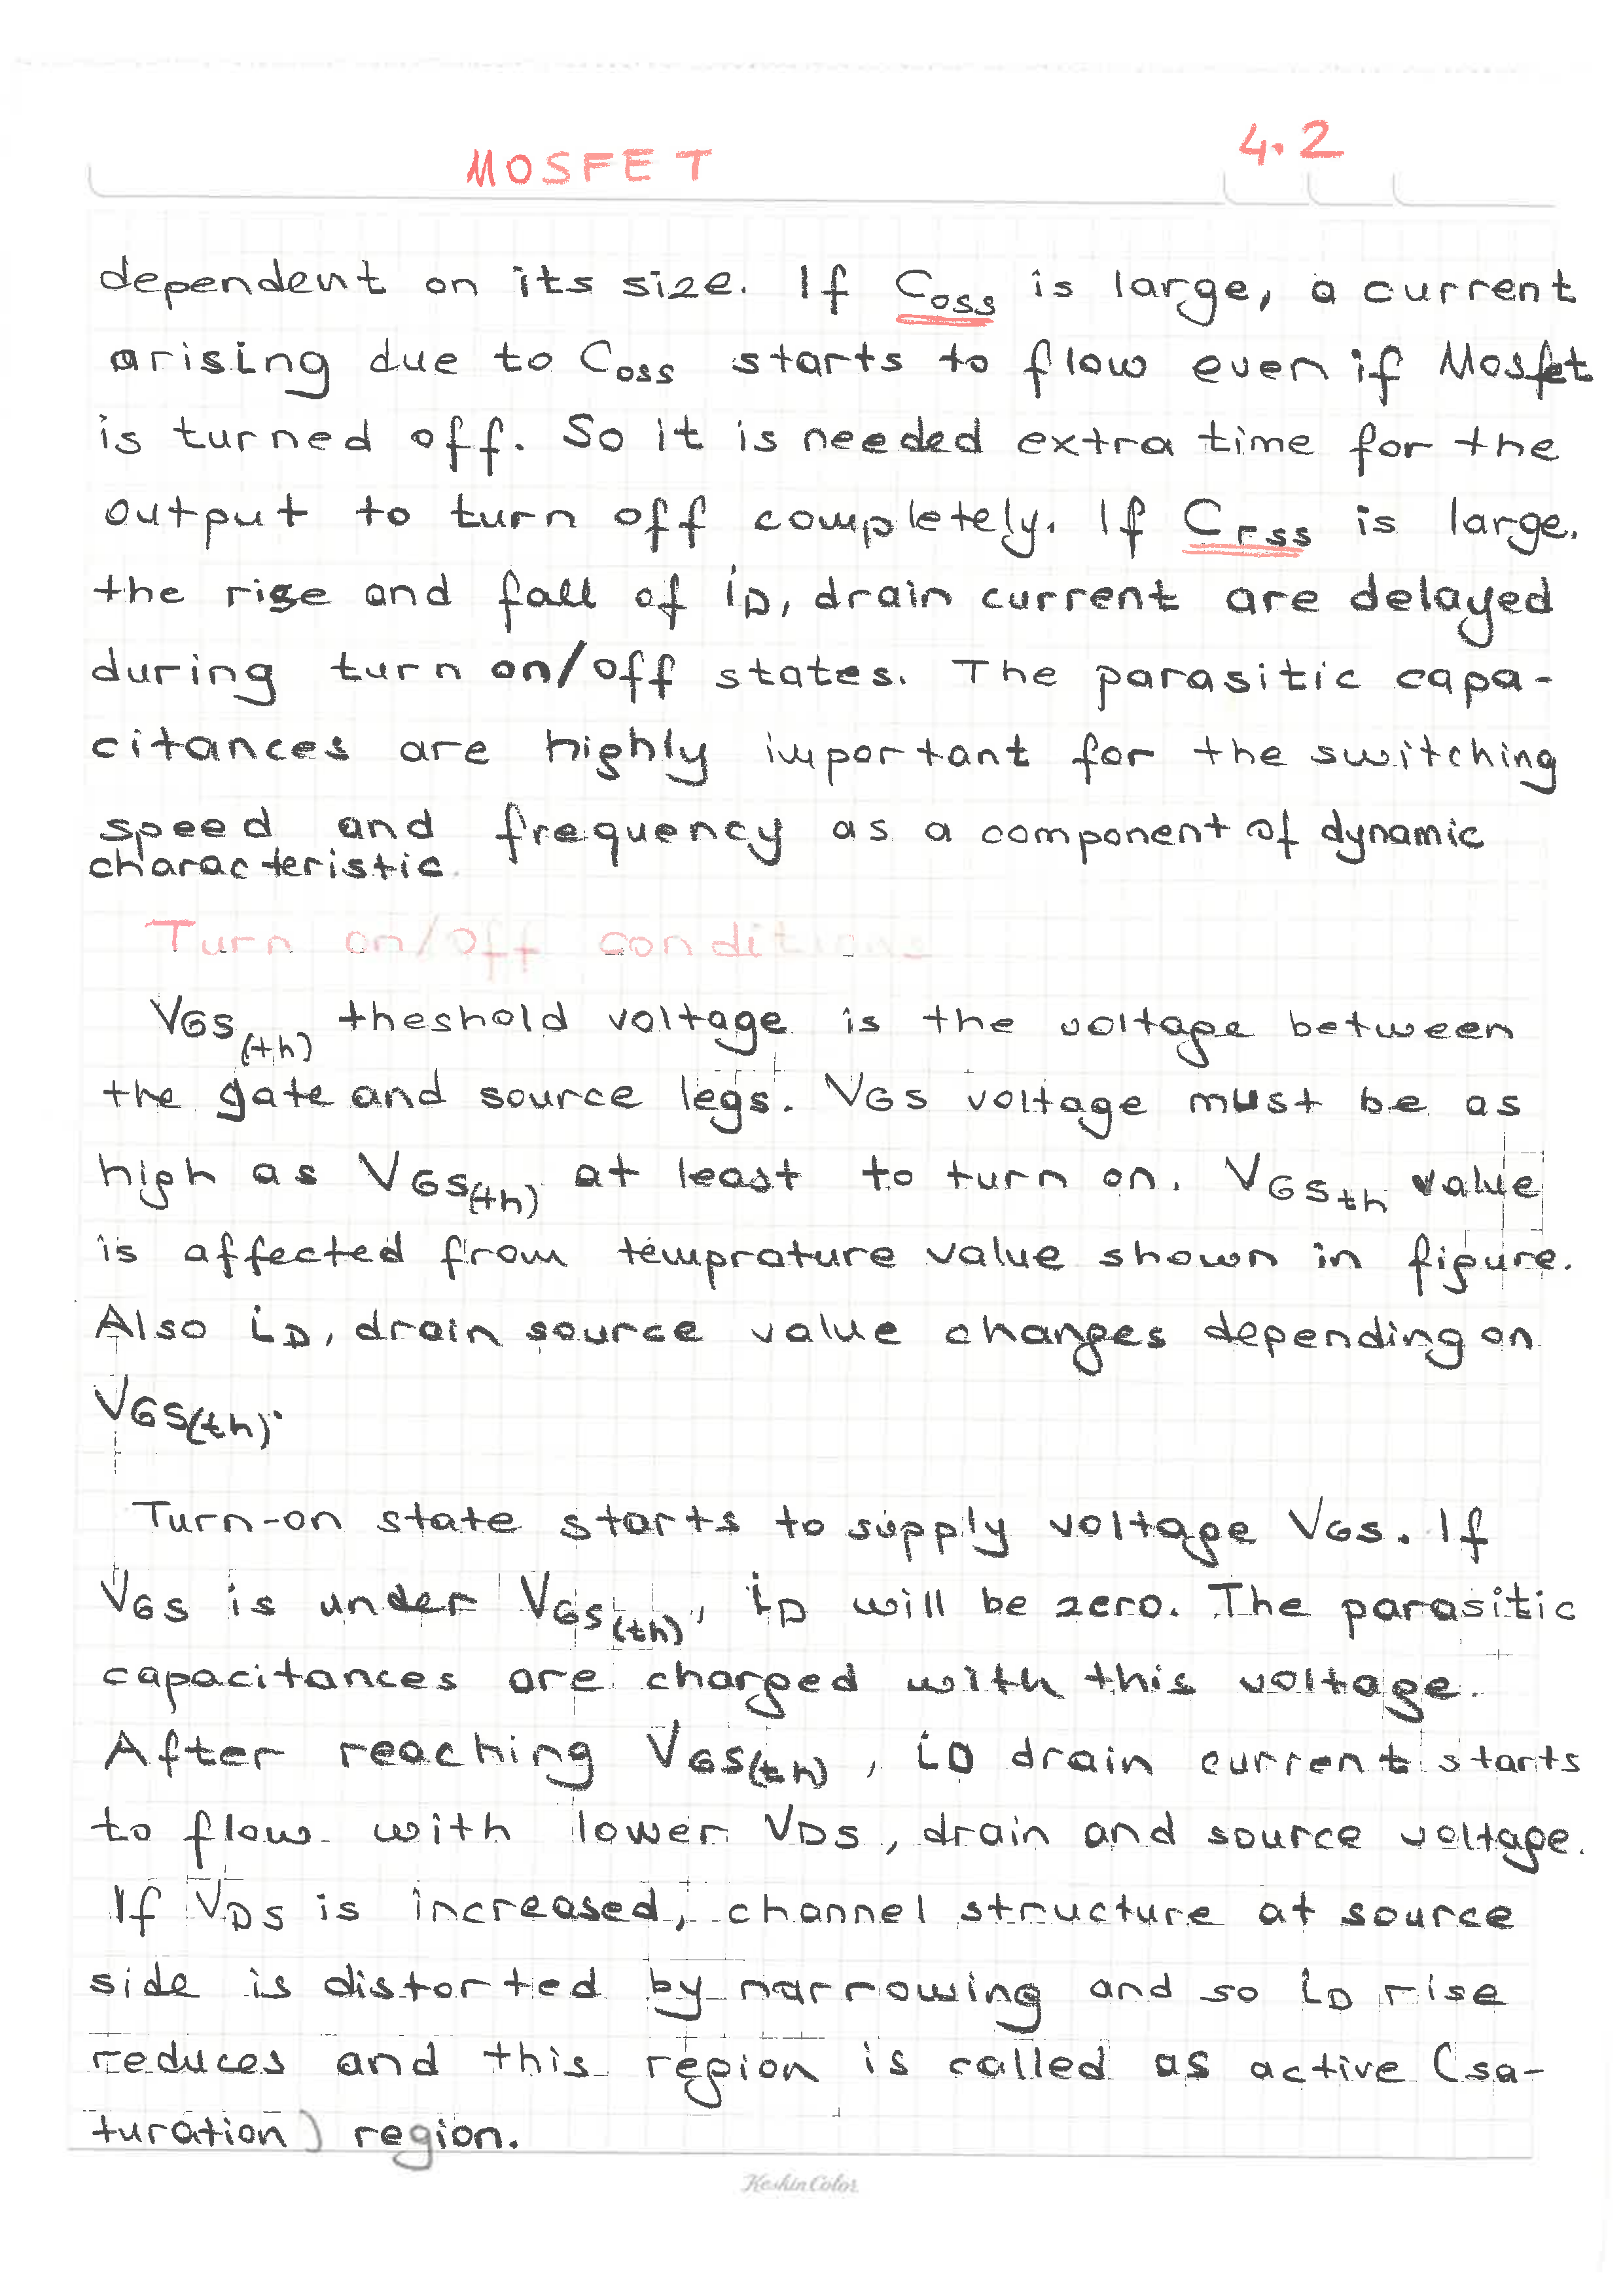 MOSFET 4.2
dependent on its size. If Coss is large, a current
arising due to Coss starts to flow even if Mosfet
is turned off. So it is needed extra time for the
output to turn off completely. If Crss is large.
the rise and fall of iD, drain current are delayed
during turn on/off states. The parasitic capa-
citances are highly important for the switching
speed and frequency as a component of dynamic
characteristic.
Turn on/off conditions
VGS(th) theshold voltage is the voltage between
the gate and source legs. VGS voltage must be as
high as VGS(th) at least to turn on. VGSth value
is affected from temprature value shown in figure.
Also iD, drain source value changes depending on
VGS(th).
Turn-on state starts to supply voltage VGS. If
VGS is under VGS(th), iD will be zero. The parasitic
capacitances are charged with this voltage.
After reaching VGS(th), iD drain current starts
to flow with lower VDS, drain and source voltage.
If VDS is increased, channel structure at source
side is distorted by narrowing and so iD rise
reduces and this region is called as active (sa-
turation) region.
KeskinColor